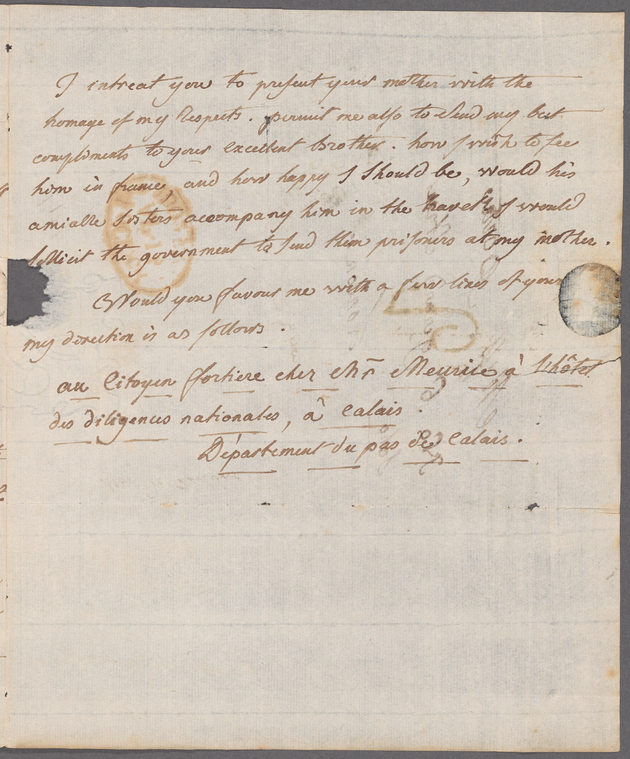 I intreat you to present your mother with the
homage of my Respects. permit me also to Send my best
compliments to your excellent Brother. how I wish to see
him in france, and how happy I Should be, would his
amiable sisters accompany him in the travel! I would
sollicit the government to send them prisoners at my mother.
Would you favour me with a few lines of your
my direction is as follows.
au Citoyen fortiere cher Mr. Meurice à l'hôtel
des diligences nationales, à Calais.
Département du pas de Calais.